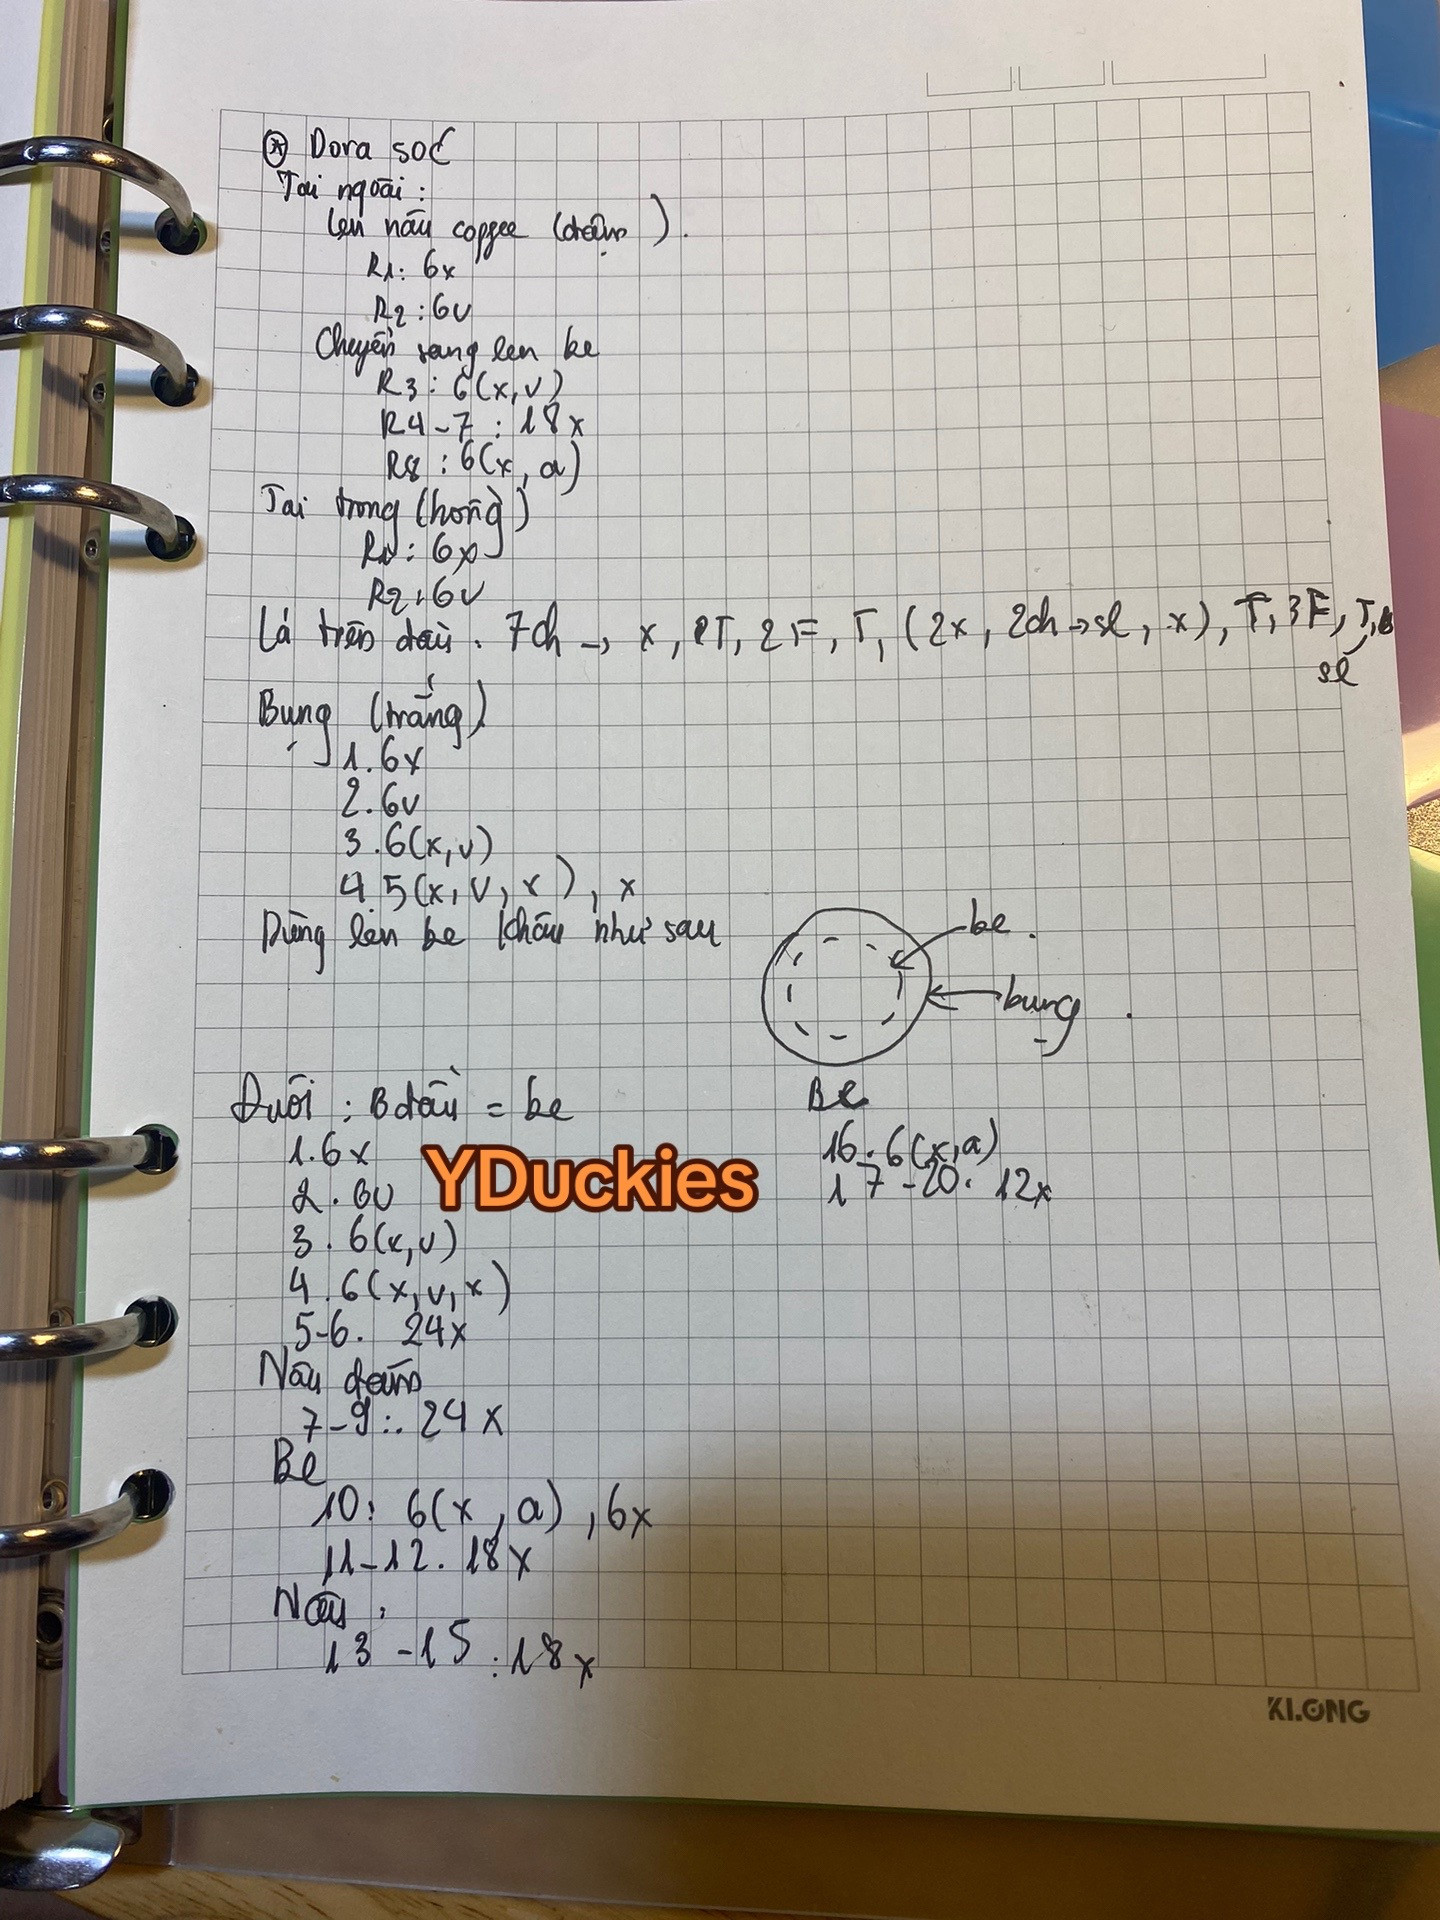 Dora sóc
Tai ngoài:
Len nâu coffee (đậm).
R1: 6x
R2: 6v
Chuyển sang len be
R3: 6(x,v)
R4-7: 18x
R8: 6(x,a)
Tai trong (hồng)
R1: 6x
R2: 6v
Lá trên đầu. 7ch → x, 2T, 2F, T, (2x, 2ch→sl, x), T, 3F, T,
sl
Bụng (trắng)
1. 6x
2. 6v
3. 6(x,v)
4 5(x,v,x), x
Dùng len be khâu như sau
be.
bụng
Đuôi: B đầu = be
1. 6x
2. 6v
3. 6(x,v)
4. 6(x,v,x)
5-6. 24x
Nâu đậm
7-9: 24x
Be
10: 6(x,a), 6x
11-12. 18x
Nâu
13-15: 18x
Be
16. 6(x,a)
17-20. 12x
YDuckies
KLONG